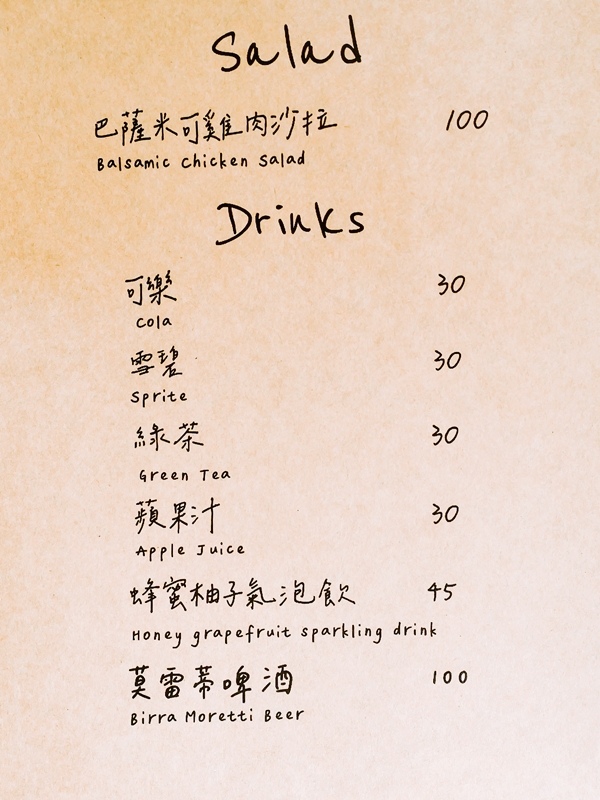 Salad
巴薩米可雞肉沙拉 100
Balsamic Chicken Salad
Drinks
可樂 30
Cola
雪碧 30
Sprite
綠茶 30
Green Tea
蘋果汁 30
Apple Juice
蜂蜜柚子氣泡飲 45
Honey grapefruit sparkling drink
莫雷蒂啤酒 100
Birra Moretti Beer